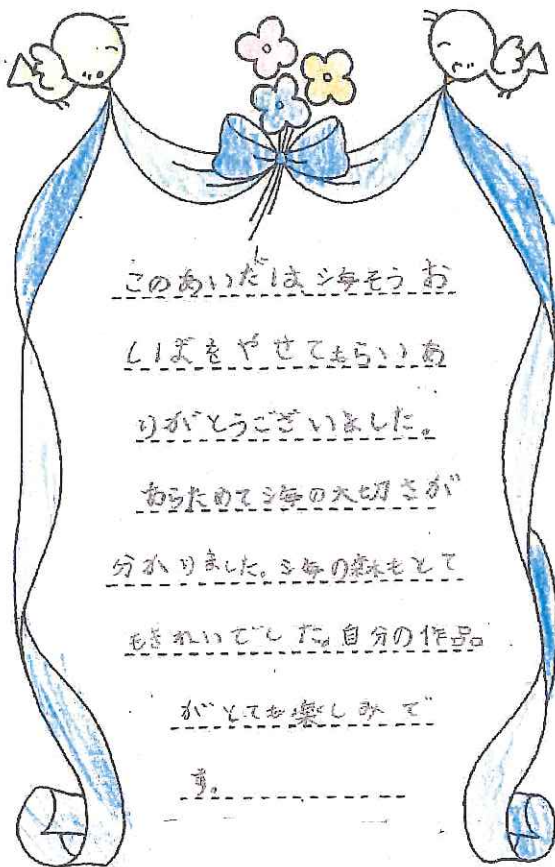 このあいだは海そうお
しばをやせてもらいあ
りがとうございました。
あらためて海の大切さが
分かりました。海の森もとて
もきれいでした。自分の作品
がとても楽しみで
す。